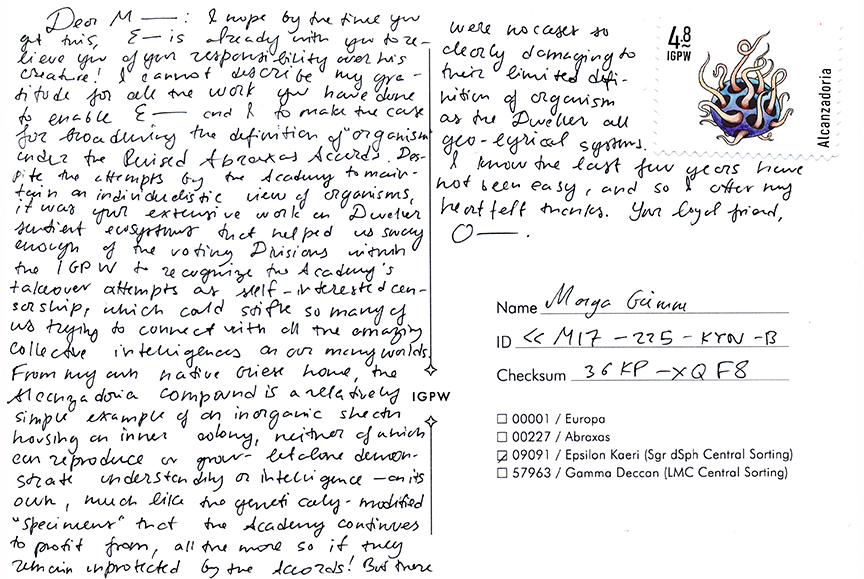 Dear M——: I hope by the time you
get this, E— is already with you to re-
lieve you of your responsibility over his
creature! I cannot describe my gra-
titude for all the work you have done
to enable E.— and I to make the case
for broadening the definition of "organism"
under the Revised Abraxas Accords. Des-
pite the attempts by the Academy to main-
tain an individualistic view of organisms,
it was your extensive work on Dweller
sentient ecosystems that helped us sway
enough of the voting Divisions within
the IGPW to recognize the Academy's
takeover attempts as self-interested cen-
sorship, which could stifle so many of
us trying to connect with all the amazing
collective intelligences on our many worlds.
From my own native Griese home, the
Alcanzadoria compound is a relatively
simple example of an inorganic sheath
housing an inner colony, neither of which
can reproduce or grow – let alone demon-
strate understanding or intelligence – on its
own, much like the genetically-modified
"specimens" that the Academy continues
to profit from, all the more so if they
remain unprotected by the Accords! But there
were no cases so
clearly damaging to
their limited defi-
nition of organism
as the Dweller
geo-lyrical systems.
I know the last few years have
not been easy, and so I offer my
heartfelt thanks. Your loyal friend,
O——.
4.8
IGPW
Alcanzadoria
IGPW
Name Morga Grimm
ID << M17 – 225 – KYN – B
Checksum 36KP – XQF8
00001 / Europa
00227 / Abraxas
09091 / Epsilon Kaeri (Sgr dSph Central Sorting)
57963 / Gamma Deccan (LMC Central Sorting)